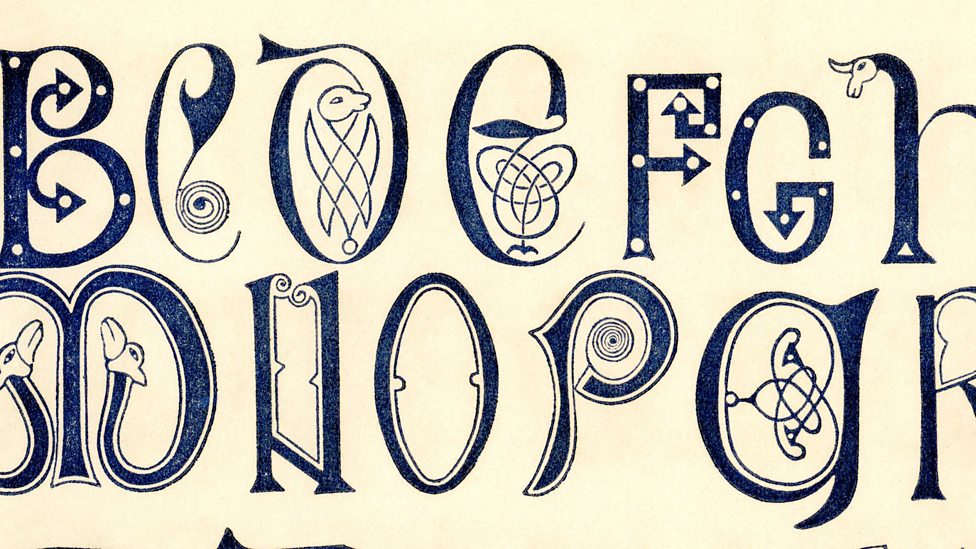 B C D E F G h
M N O P Q R